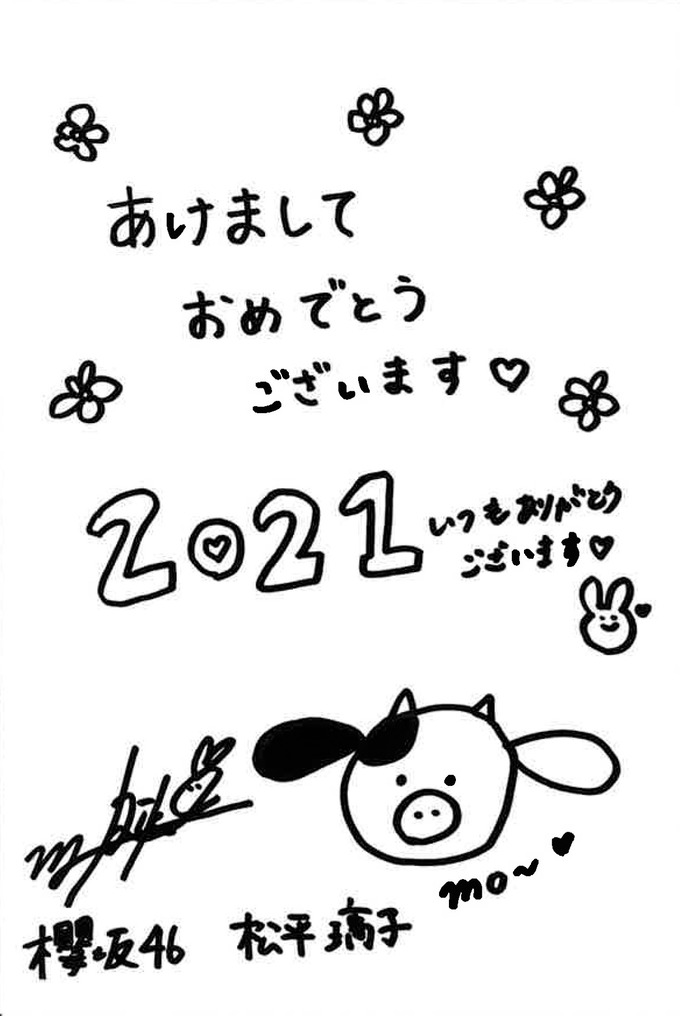 あけまして
おめでとう
ございます♡
2021
いつもありがとう
ございます♡
mo~♥
櫻坂46 松平璃子